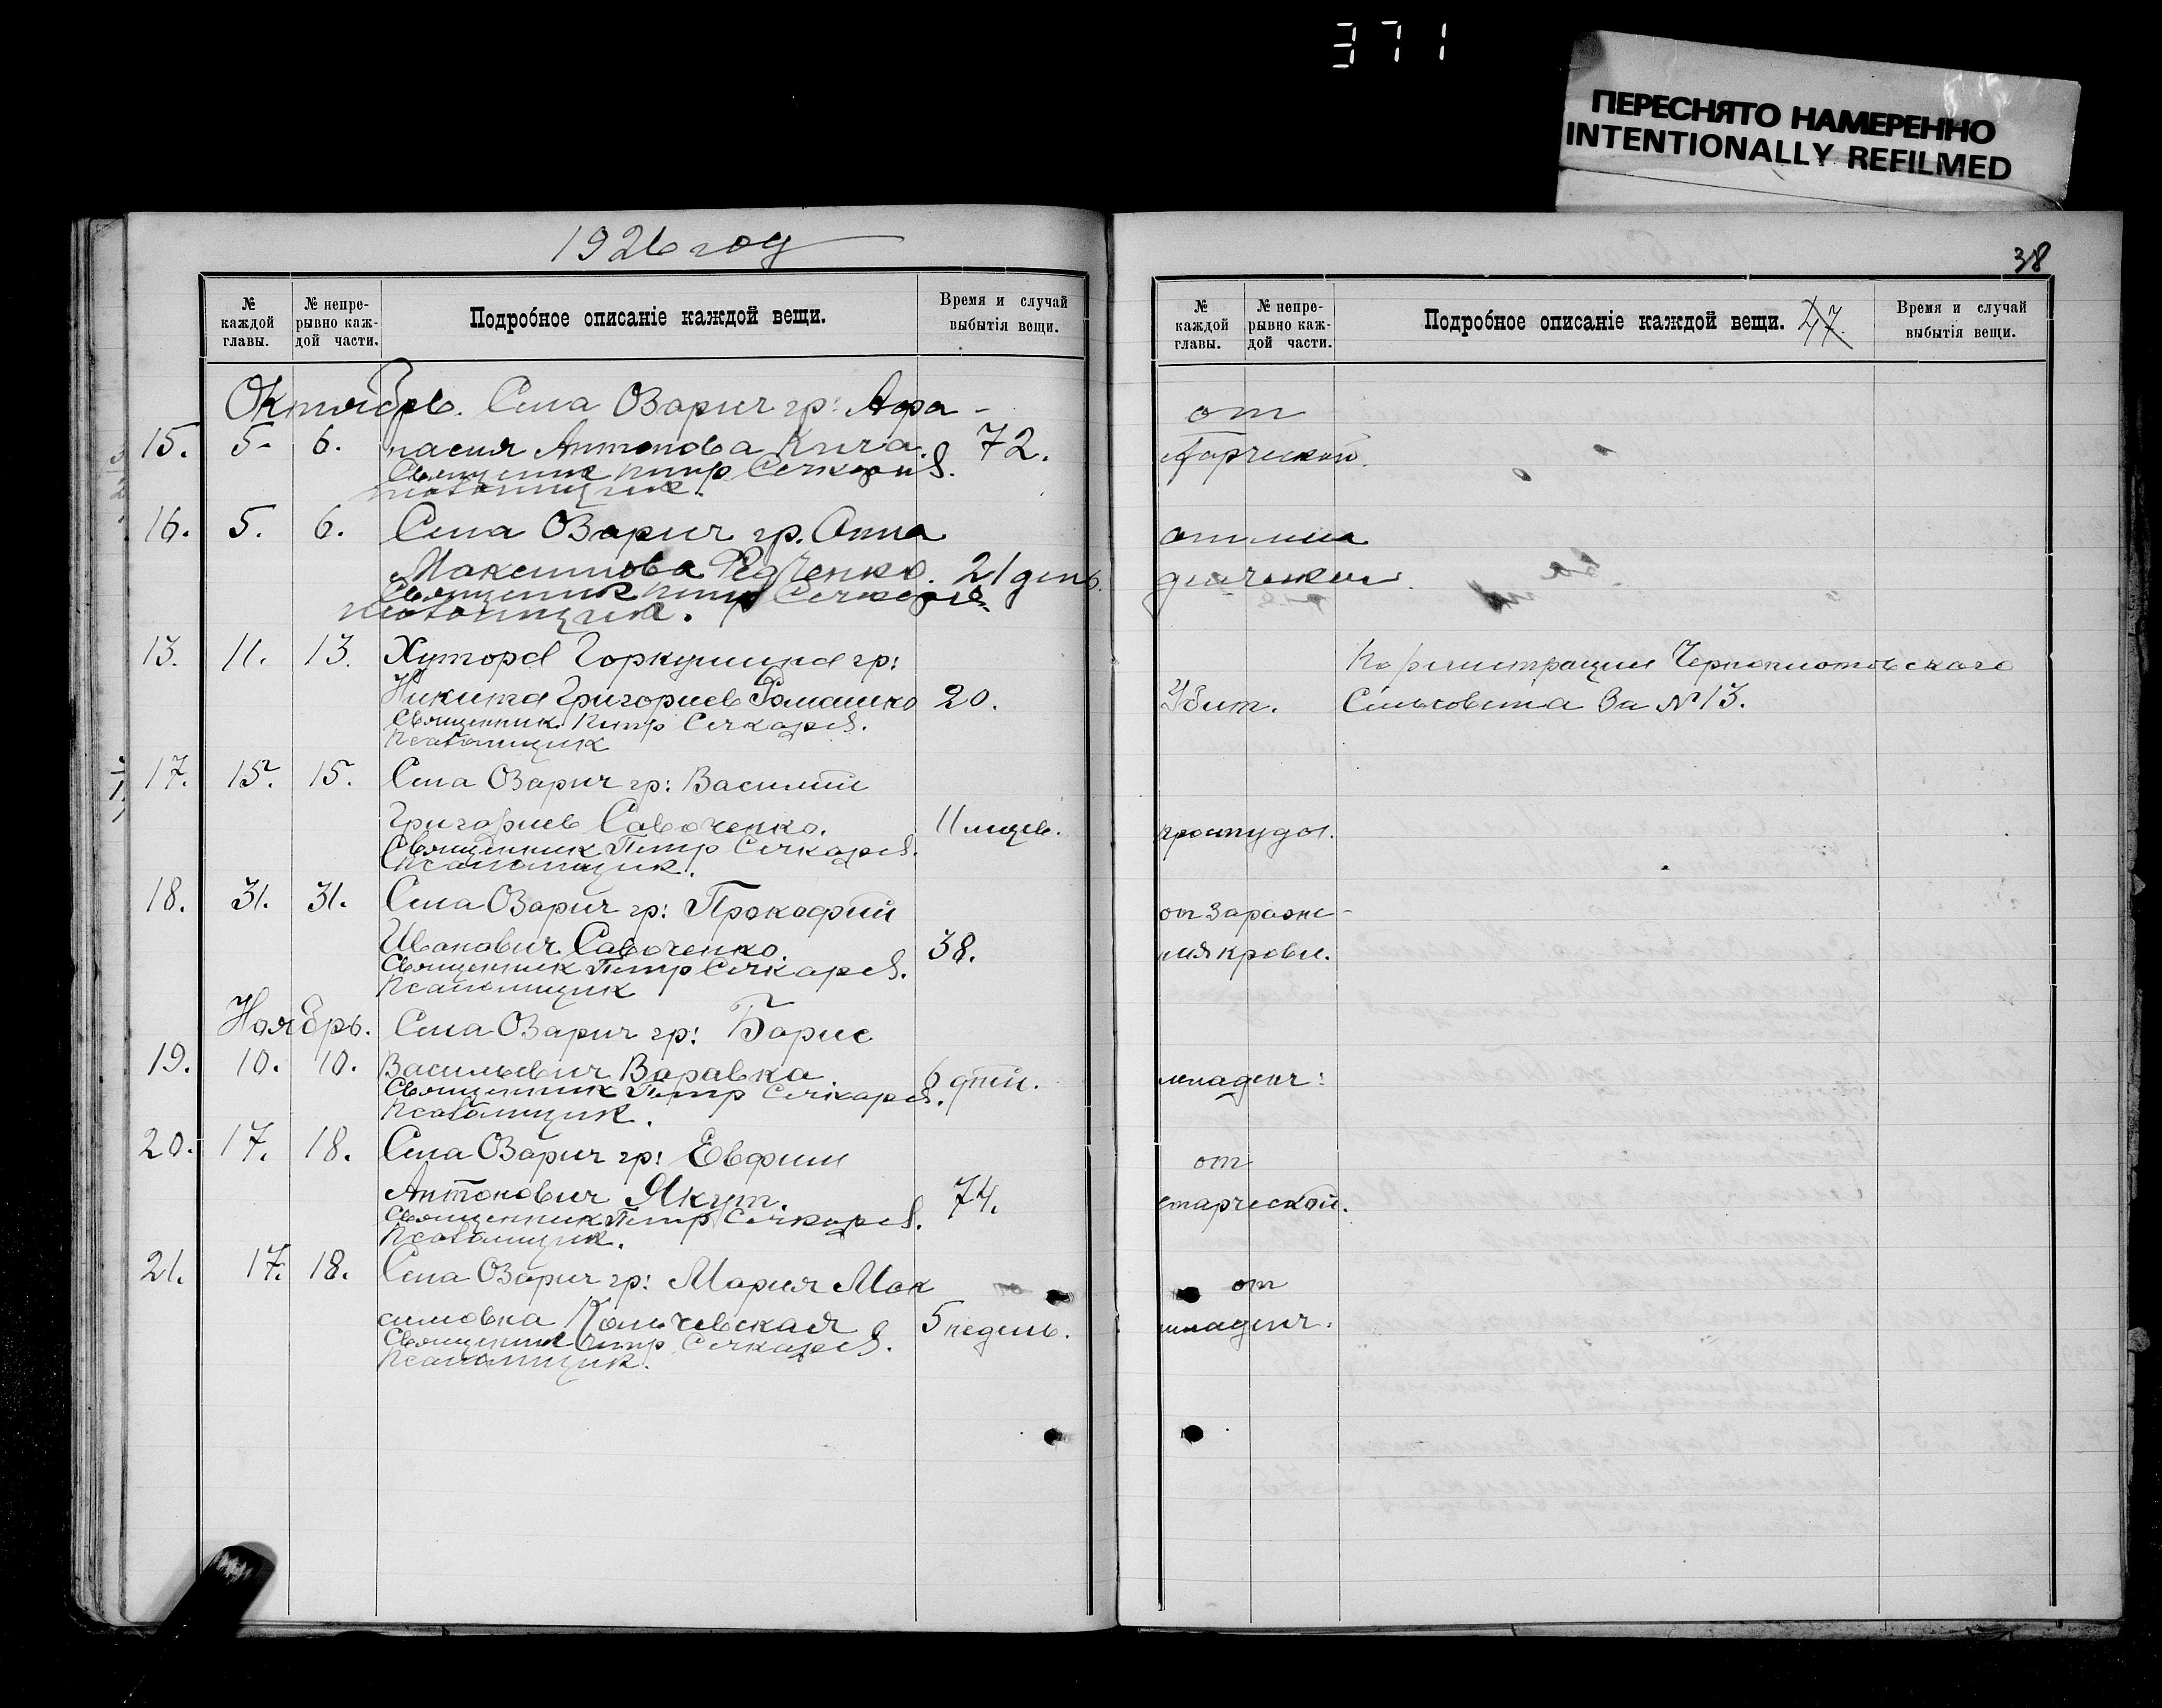 371
ПЕРЕСНЯТО НАМЕРЕННО
INTENTIONALLY REFILMED
1926 год
№ каждой главы.
№ непрерывно каждой части.
Подробное описаніе каждой вещи.
Время и случай выбытія вещи.
Октябрь. Села Озарич гр: Афа-
15. 5. 6. насия Антонова Кича. 72.
Священник Петр Сечкарев.
Псаломщик.
16. 5. 6. Села Озарич гр. Анна
Максимова Редченко. 21 день.
Священник Петр Сечкарев.
Псаломщик.
13. 11. 13. Хутора гр:
Никита Григориев Ромашко 20.
Священник Петр Сечкарев.
Псаломщик
17. 15. 15. Села Озарич гр: Василий
Григориев Савоченко. 11 месяцев.
Священник Петр Сечкарев.
Псаломщик.
18. 31. 31. Села Озарич гр: Прокофий
Иванович Савоченко. 38.
Священник Петр Сечкарев.
Псаломщик
Ноябрь. Села Озарич гр: Борис
19. 10. 10. Васильевич Варавка 6 дней.
Священник Петр Сечкарев.
Псаломщик.
20. 17. 18. Села Озарич гр: Евфим
Антонович Якут. 74.
Священник Петр Сечкарев.
Псаломщик.
21. 17. 18. Села Озарич гр: Мария Мак
симовна 5 недель.
Священник Петр Сечкарев.
Псаломщик.
38
№ каждой главы.
№ непрерывно каждой части.
Подробное описаніе каждой вещи. 47.
Время и случай выбытія вещи.
от
старческой.
от мла
денческой.
По регистрации
Убит. Сельсовета За № 13.
простуды.
от зараже-
ния крови.
младенч:
от
старческой.
от
младенч.